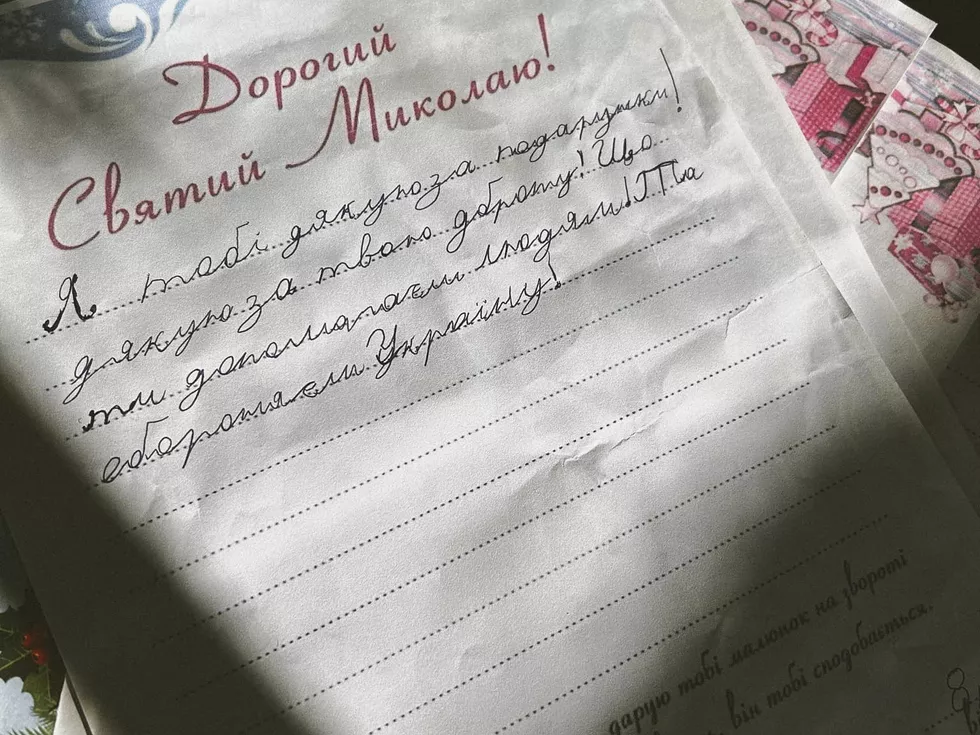 Дорогий
Святий Миколаю!
Я тобі дякую за подарунки!
дякую за твою доброту! Що
ти допомагаєш людям! Та
обороняєш Україну!
дарую тобі малюнок на звороті
він тобі сподобається.